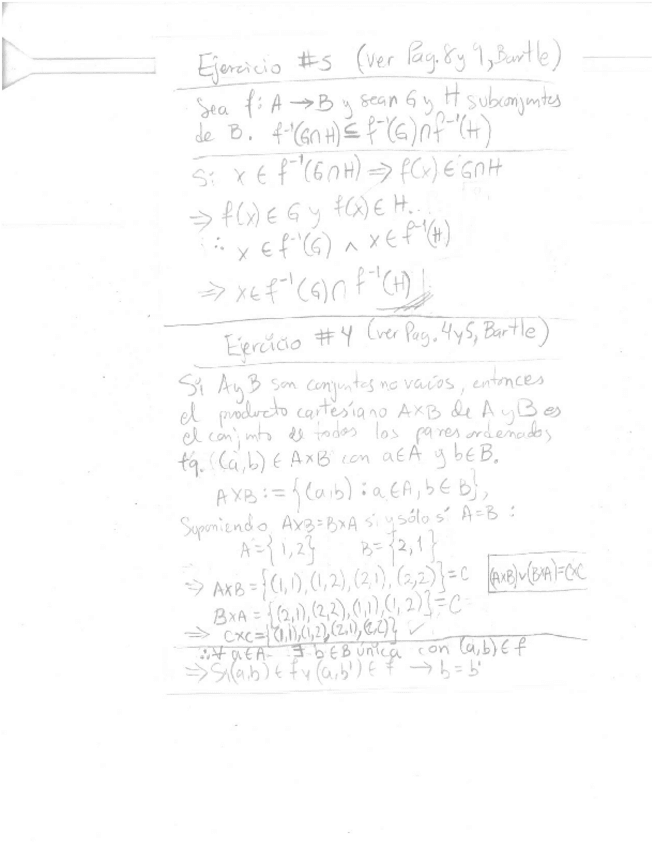 Ejercicio #5 (ver Pag. 8 y 9, Bartle)
Sea f: A → B y sean G y H subconjuntos
de B. f⁻¹(G∩H) ⊆ f⁻¹(G) ∩ f⁻¹(H)
Si x ∈ f⁻¹(G∩H) ⇒ f(x) ∈ G∩H
⇒ f(x) ∈ G y f(x) ∈ H..
∴ x ∈ f⁻¹(G) ∧ x ∈ f⁻¹(H)
⇒ x ∈ f⁻¹(G) ∩ f⁻¹(H)
Ejercicio #4 (ver Pag. 4 y 5, Bartle)
Si A y B son conjuntos no vacios, entonces
el producto cartesiano A×B de A y B es
el conjunto de todos los pares ordenados
tq. (a,b) ∈ A×B con a∈A y b∈B.
A×B := {(a,b) : a∈A, b∈B},
Suponiendo A×B = B×A si y sólo sí A=B :
A = {1,2} B = {2,1}
⇒ A×B = {(1,1), (1,2), (2,1), (2,2)} = C (A×B)∨(B×A)=C×C
B×A = {(2,1), (2,2), (1,1), (1,2)} = C
⇒ C×C = {(1,1), (1,2), (2,1), (2,2)} ✓
∴ ∀ a∈A ∃ b∈B única con (a,b) ∈ f
⇒ Si (a,b) ∈ f y (a,b') ∈ f → b = b'